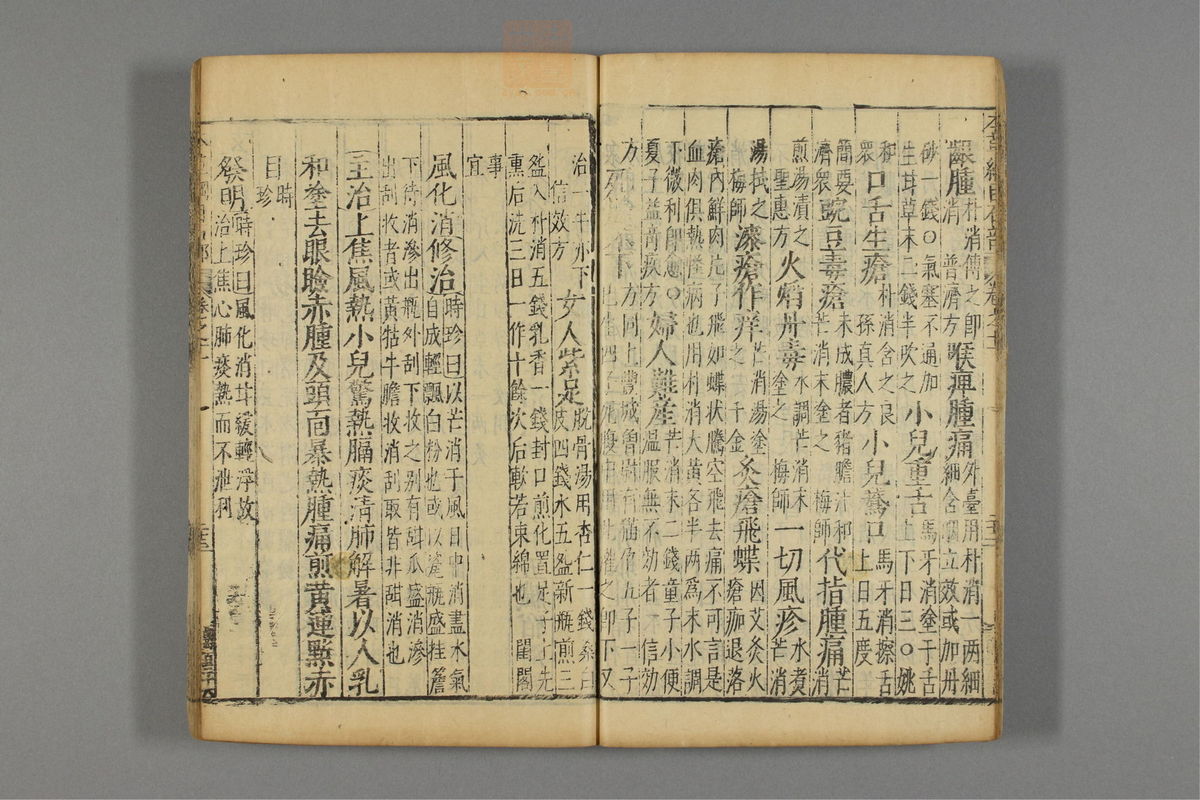 齦腫消 朴消傅之即
普濟方喉痺腫痛外臺用朴消一兩細
細含嚥立效或加丹
砂一錢○氣塞不通加
生甘草末二錢半吹之小兒重舌馬牙消塗于舌
上下日三○姚
和
眾口舌生瘡朴消含之良
孫真人方小兒鵞口馬牙消擦舌
上日五度
簡要
濟眾豌豆毒瘡未成膿者豬膽汁和
芒消末塗之 梅師代指腫痛芒
消
煎湯漬之
聖惠方火焰丹毒水調芒消末
塗之 梅師一切風疹水煮
芒消
湯拭之
梅師漆瘡作痒芒消湯塗
之 千金灸瘡飛蝶因艾灸火
瘡痂退落
瘡內鮮肉片子飛如蝶状騰空飛去痛不可言是
血肉俱熱怪病也用朴消大黃各半两爲末水調
下微利即愈○
夏子益奇疾方婦人難產芒消末二錢童子小便
溫服無不効者 信効
方
下
治一牛亦下
信效方女人紫足脫骨湯用杏仁一錢桑白
皮四錢水五盌新瓶煎三
盌入朴消五錢乳香一錢封口煎化置足于上先
熏后洗三日一作十餘次后軟若束綿也 閨閣
事
宜
風化消修治時珍曰以芒消于風日中消盡水氣
自成輕飄白粉也或以瓷瓶盛挂簷
下待消滲出瓶外刮下收之别有甜瓜盛消滲
出刮收者或黃牯牛膽收消刮取皆非甜消也
主治上焦風熱小兒驚熱膈痰清肺解暑以人乳
和塗去眼瞼赤腫及頭面暴熱腫痛煎黃連點赤
目時
珍
發明時珍曰風化消甘緩輕浮故
治上焦心肺痰熱而不泄利